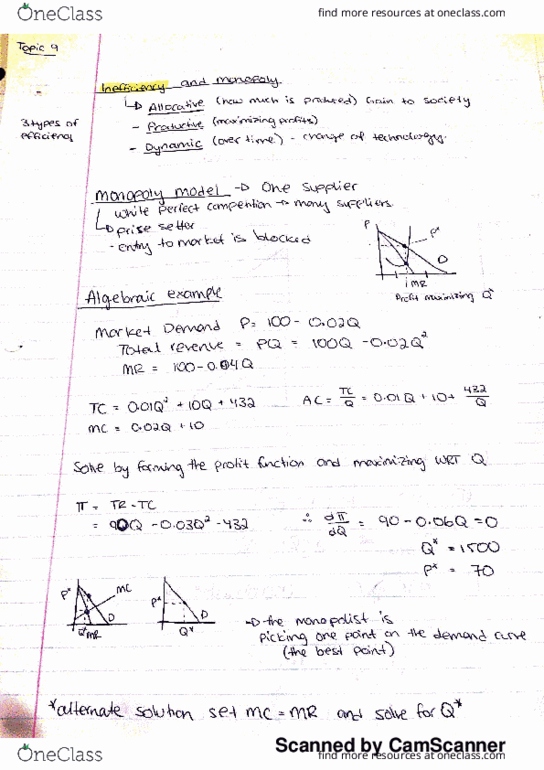 OneClass
find more resources at oneclass.com
Topic 9
Inefficiency and monopoly.
3 types of efficiency
↳ Allocative (how much is produced) Gain to society
- Productive (maximizing profits)
- Dynamic (over time) - change of technology.
monopoly model → One supplier
while perfect competition → many suppliers
↳ prise setter
- entry to market is blocked
P
P*
D
MR
Profit maximizing Q*
Algebraic example
Market Demand P = 100 - 0.02Q
Total revenue = PQ = 100Q - 0.02Q²
MR = 100 - 0.04Q
TC = 0.01Q² + 10Q + 432
AC = TC/Q = 0.01Q + 10 + 432/Q
MC = 0.02Q + 10
Solve by forming the profit function and maximizing WRT Q
π = TR - TC
= 90Q - 0.03Q² - 432
∴ dπ/dQ = 90 - 0.06Q = 0
Q* = 1500
P* = 70
P*
MC
D
Q*
MR
P*
D
Q*
→ the monopolist is
picking one point on the demand curve
(the best point)
*alternate solution set MC = MR and solve for Q*
Scanned by CamScanner
OneClass
find more resources at oneclass.com